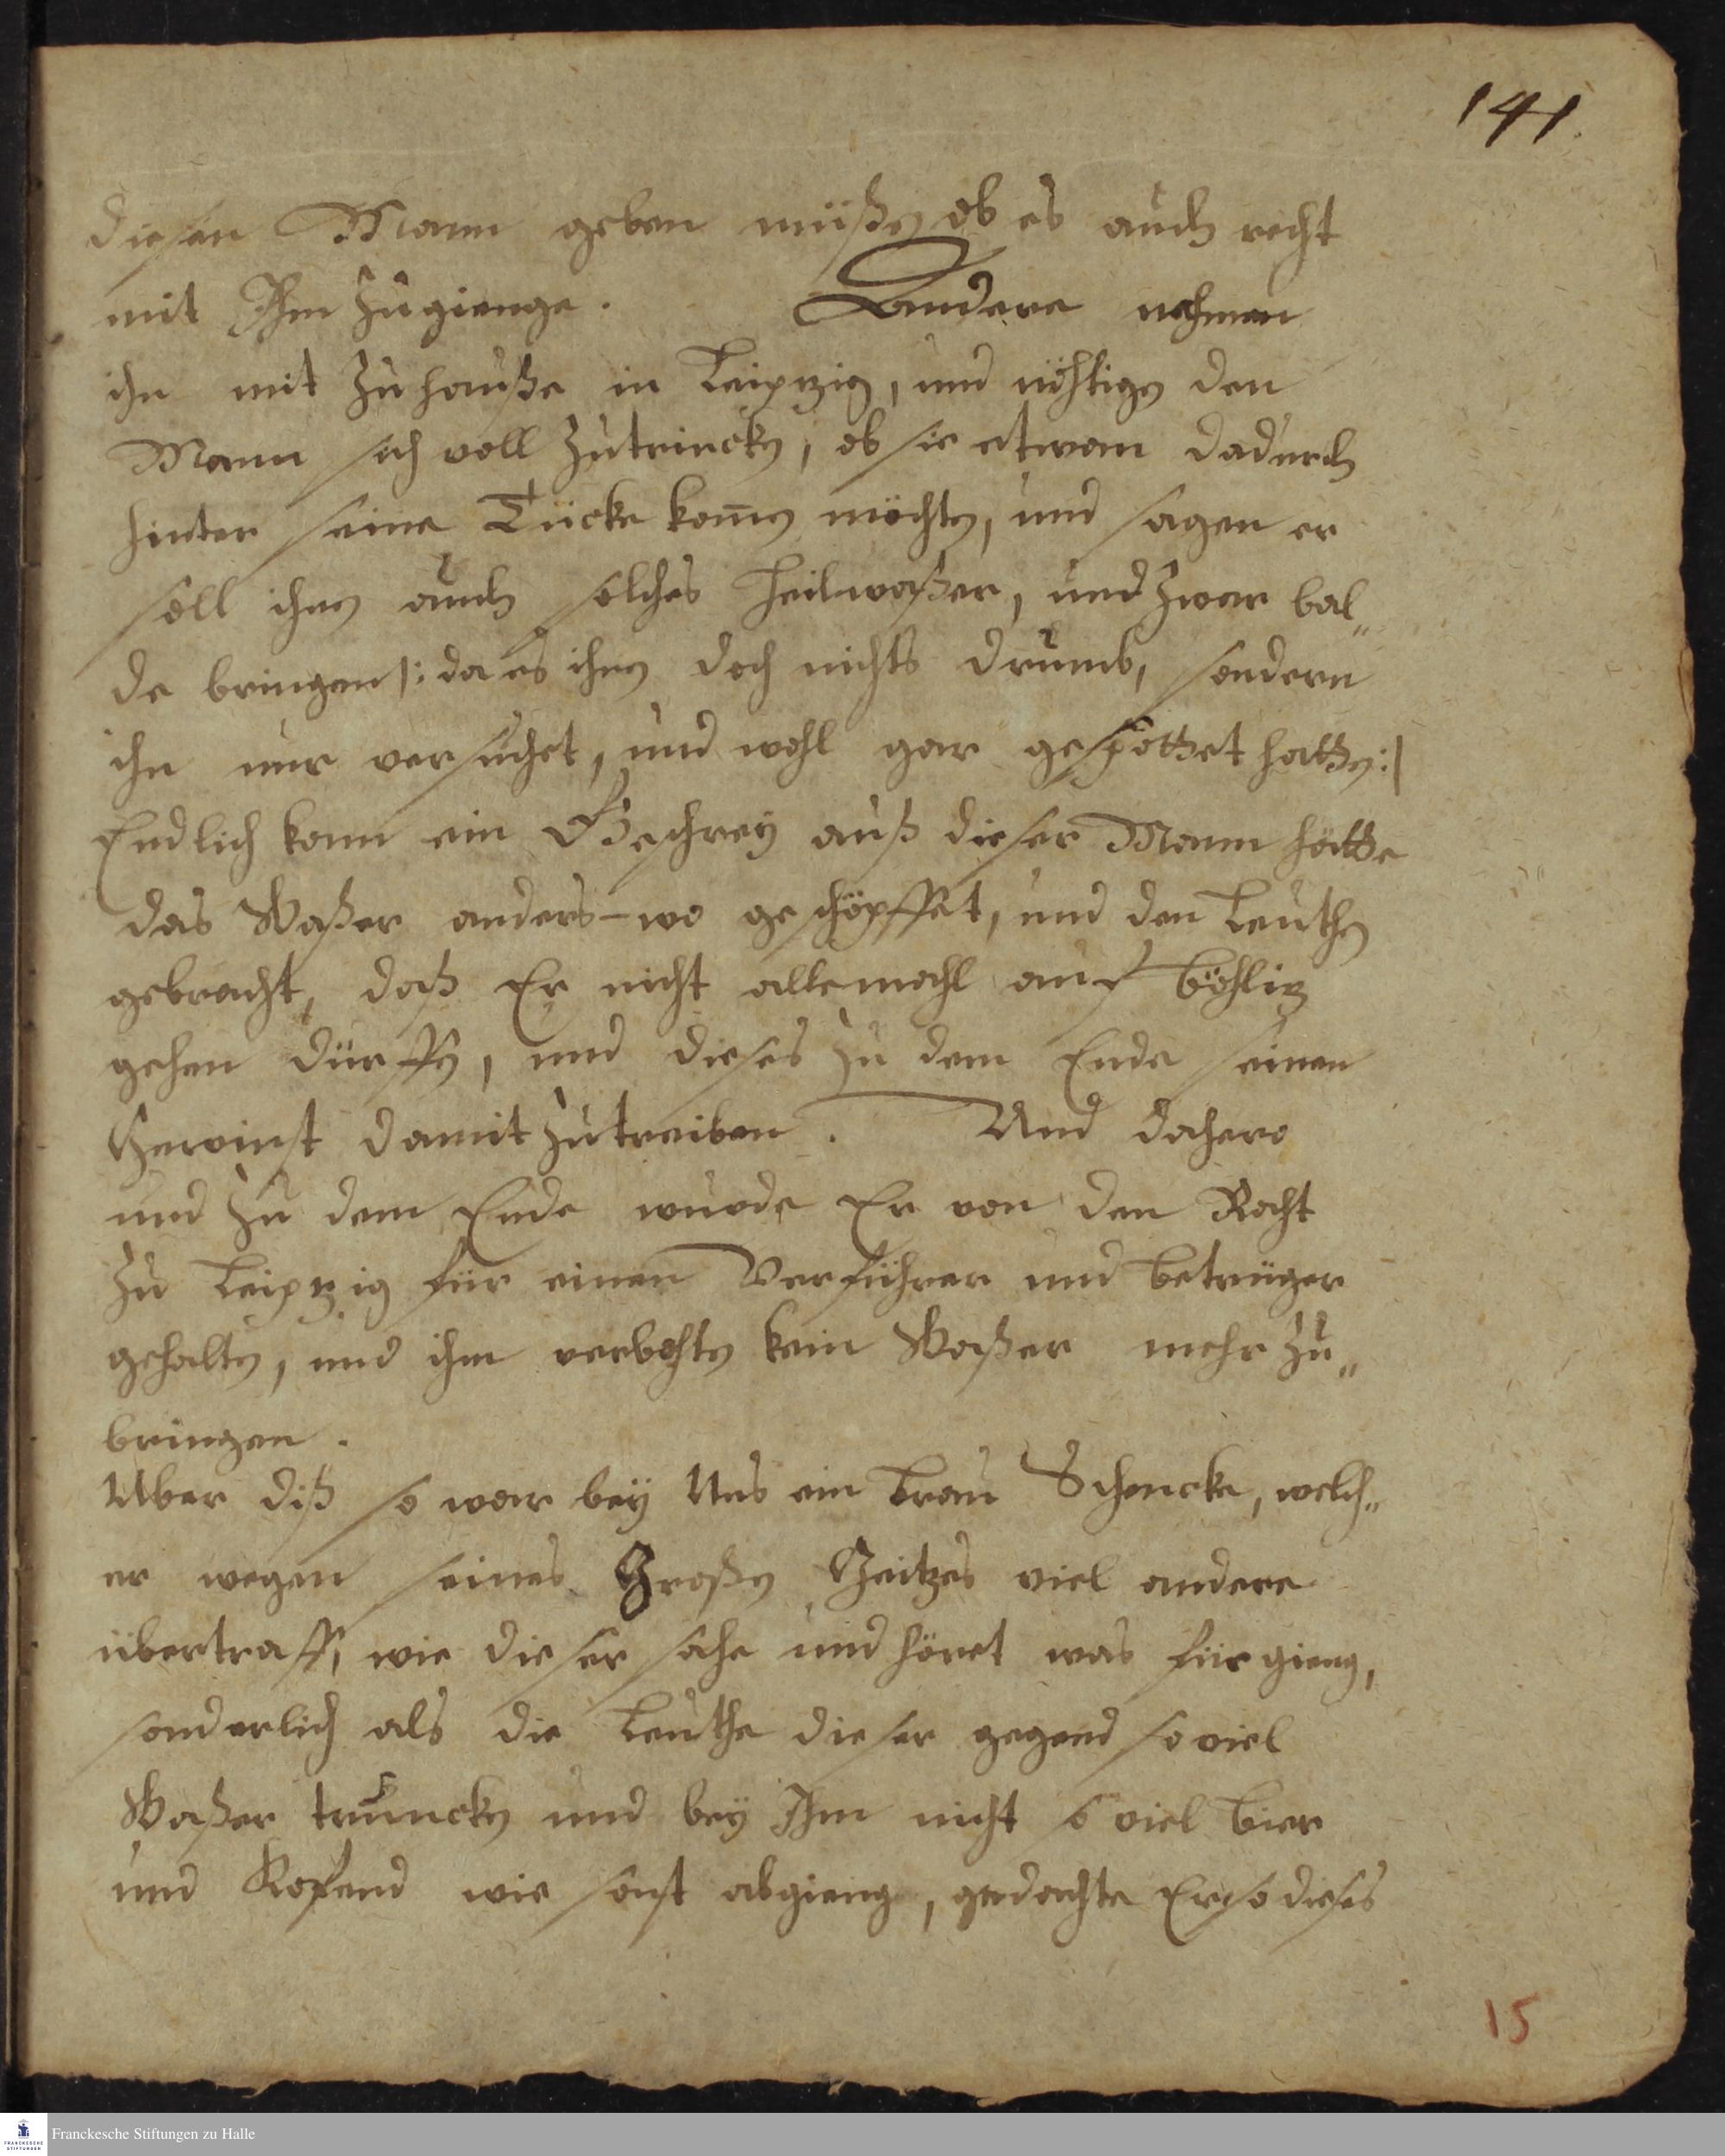 141.
diesen Mann geben müßen ob es auch recht
mit Ihm zugienge. Andere nehmen
ihn mit zu hauße in Leipzig, und nöhtigen den
Mann sich voll zutrincken, ob sie etwan dadurch
hinter seine Tücke kom̄en möchten, und sagen er
soll ihnen auch solches Heilwaßer, und zwar bal„
de bringen /: da es ihnen doch nichts drumb, sondern
ihn nur versuchet, und wohl gar gespottet hatten :/
Endlich kam ein Geschrey auß dieser Mann hätte
das Waßer anders-wo geschöpffet, und den Leuthen
gebracht, daß Er nicht allemahl auf Böhlitz
gehen dürffen, und dieses zu dem Ende seinen
Gewinst damit zutreiben. Und dahero
und zu dem Ende wurde Er von den Raht
zu Leipzig für einen Verführer und betrüger
gehalten, und ihm verbohten kein Waßer mehr zu„
bringen.
Uber diß so war bey Uns ein brau Schencke, welch„
er wegen seines Großen Geitzes viel andere
übertraff, wie dieser sahe und höret was fürgieng,
sonderlich als die Leuthe dieser gegend so viel
Waßer truncken und bey Ihm nicht so viel bier
und Kofend wie sonst abgieng, gedachte Er so dieses
15
Franckesche Stiftungen zu Halle